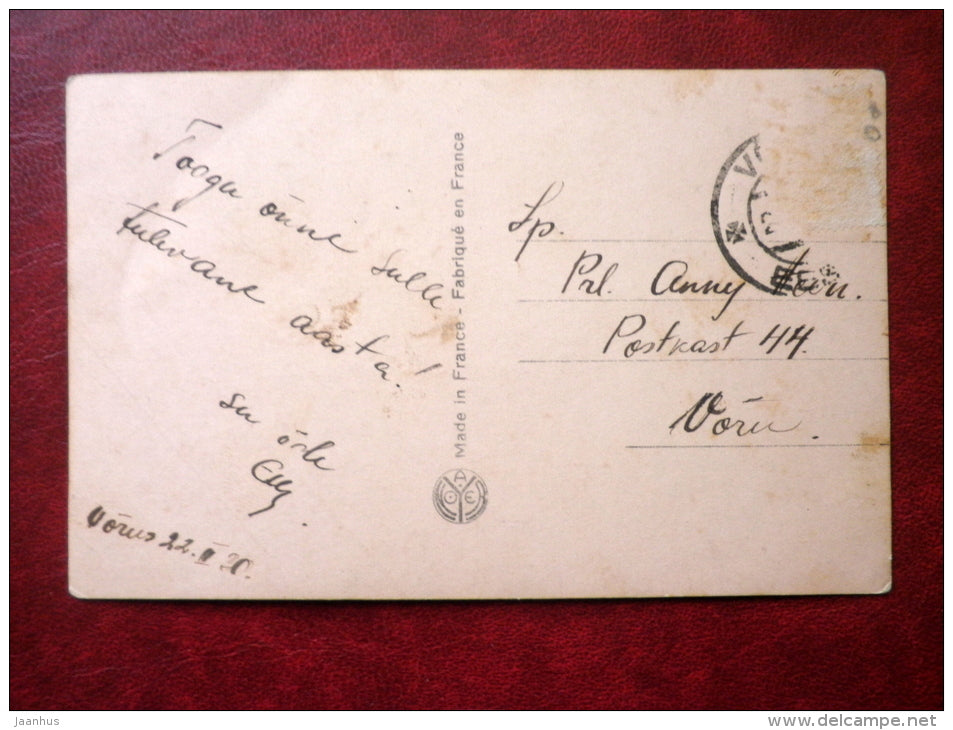 Toogu õnni sulle
tulevane aasta!
su õde
Elly.
Võrus 22. 30.
Made in France - Fabriqué en France
Sp.
Prl. Anny
Postkast 44.
Võru.
jaanhus
www.delcampe.net